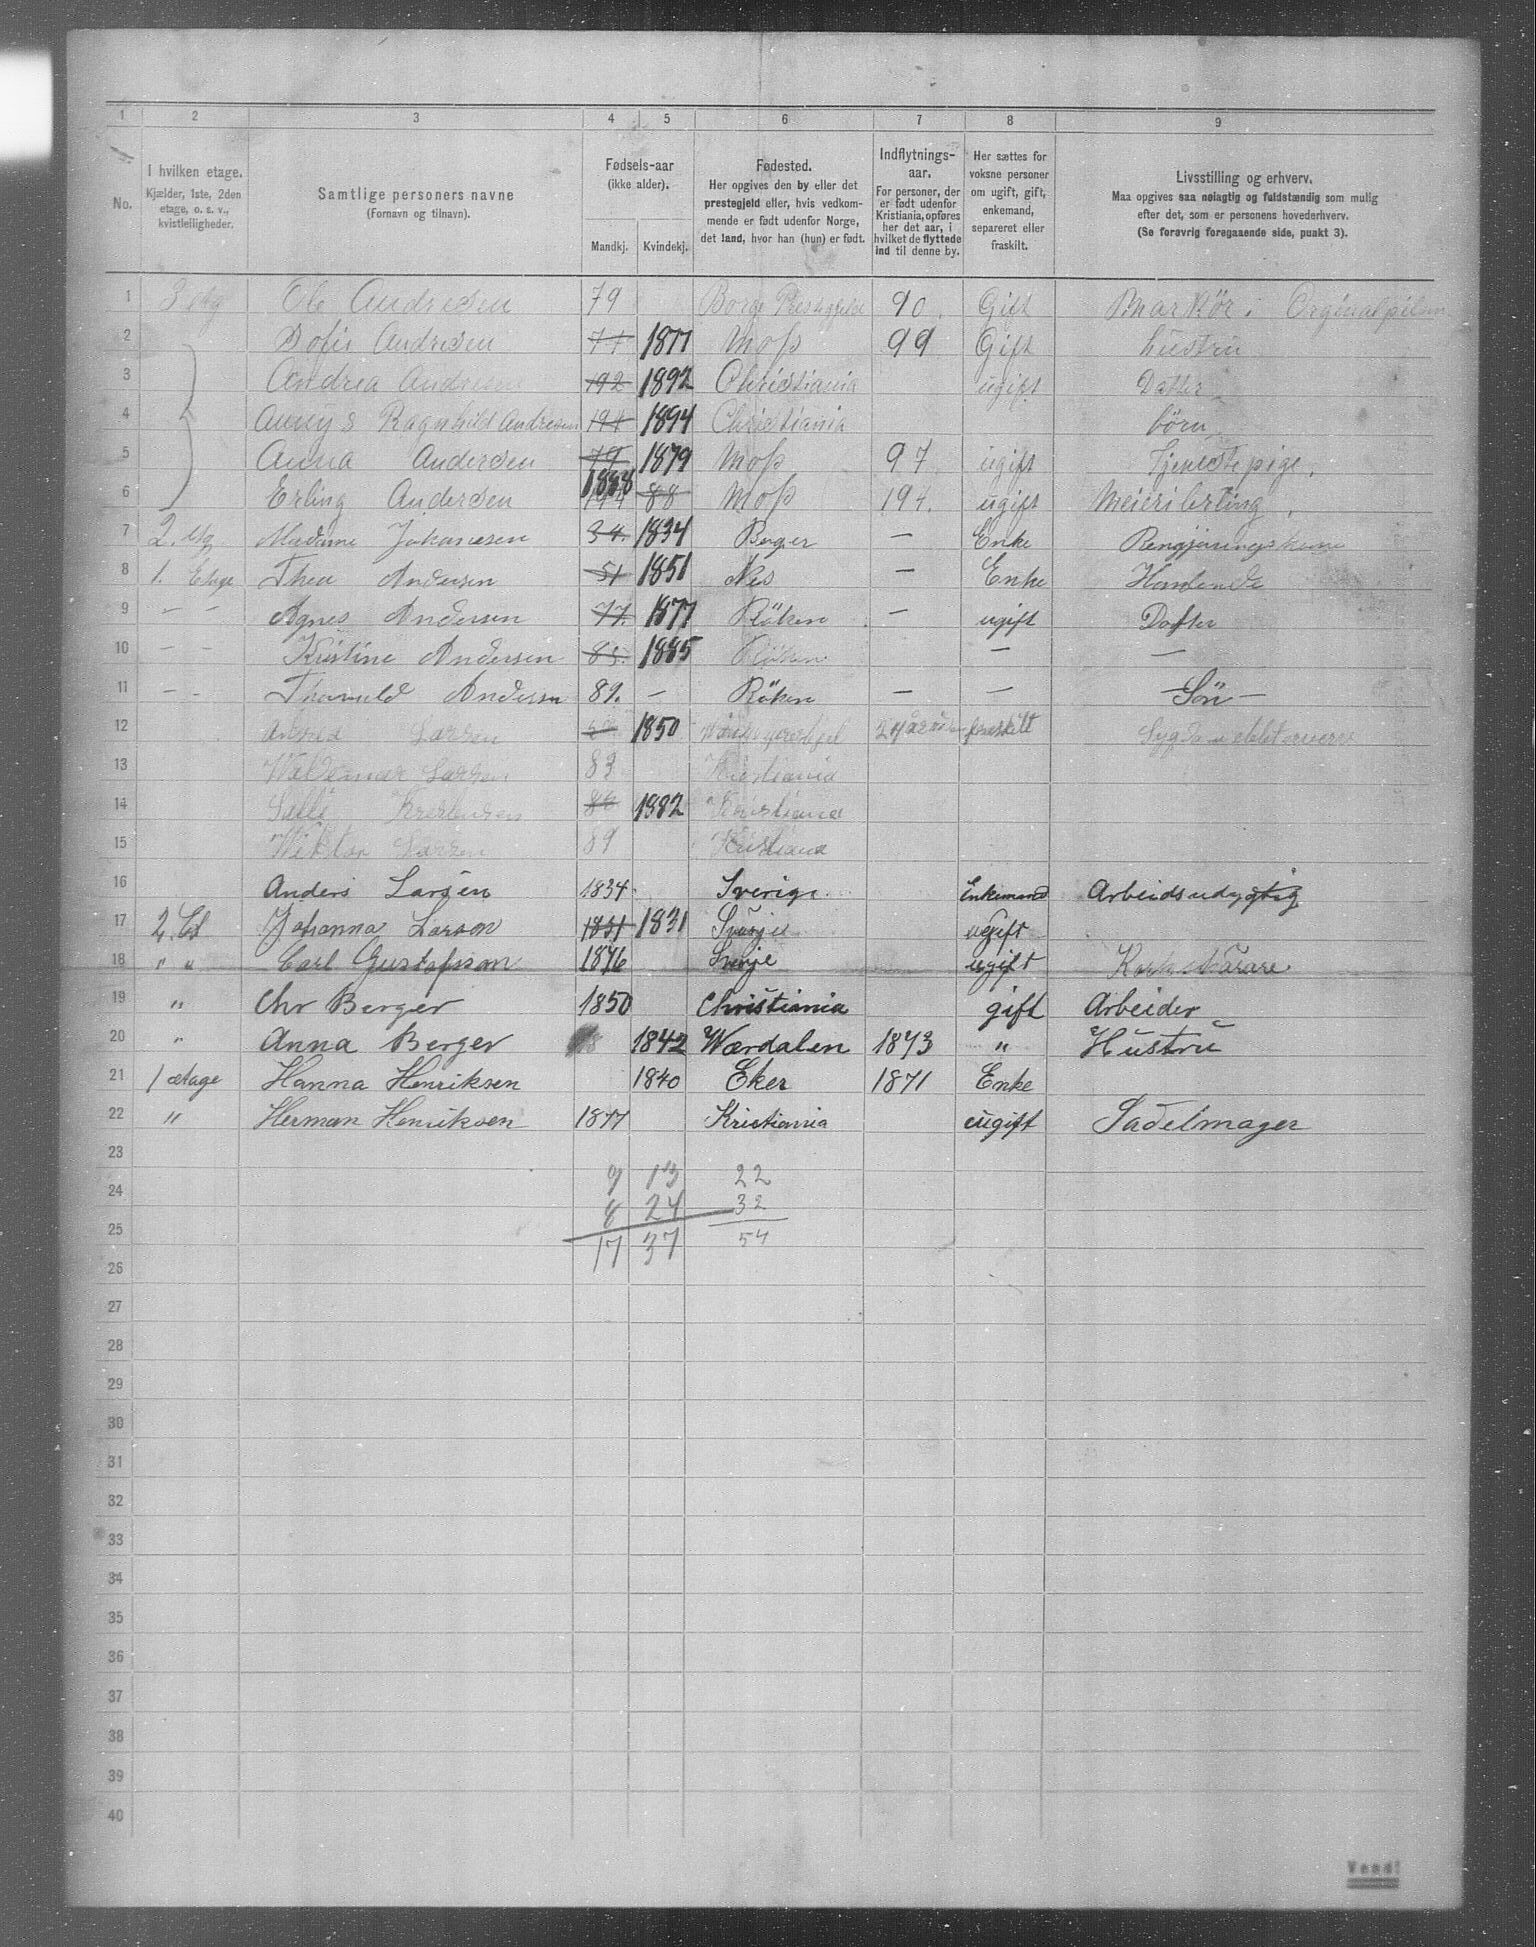 1 2 3 4 5 6 7 8 9
No. I hvilken etage. Kjælder, 1ste, 2den etage, o. s. v., kvistleiligheder. Samtlige personers navne (Fornavn og tilnavn). Fødsels-aar (ikke alder). Mandkj. Kvindekj. Fødested. Her opgives den by eller det prestegjeld eller, hvis vedkommende er født udenfor Norge, det land, hvor han (hun) er født. Indflytnings-aar. For personer, der er født udenfor Kristiania, opføres her det aar, i hvilket de flyttede ind til denne by. Her sættes for voksne personer om ugift, gift, enkemand, separeret eller fraskilt. Livsstilling og erhverv. Maa opgives saa nøiagtig og fuldstændig som mulig efter det, som er personens hovederhverv. (Se forøvrig foregaaende side, punkt 3).
1 3 etg Ole Andresen 79 Borge 90. Gift Markør.
2 Sofie Andresen 77 1877 Moss 99 Gift hustru
3 Andrea Andresen 192 1892 Christiania ugift Datter
4 Ragnhild Andresen 194 1894 Christiania børn
5 Anna Andersen 79 1879 Moss 97 ugift Tjenestepige.
6 Erling Andersen 1888 88 Moss 194. ugift
7 2. etg Madame Johanesen 34. 1834 Berger — Enke
8 1. Etage Thea Andersen 51 1851 Nes — Enke Handlende
9 — — Agnes Andersen 77. 1877 Röken — ugift Datter
10 — — Kristine Andersen 85. 1885 Röken — —
11 — — Andersen 89. — Röken — — Sön —
12 Larsen 1850 fraskilt
13 Valdemar Larsen 83 Kristiania
14 1882 Kristiania
15 Viktor Larsen 89 Kristiania
16 Anders Larsen 1834 Sverige Enkemand
17 2. Johanna Larson 1831 1831 ugift
18 " " Carl Gustafsson 1876 Sverje ugift
19 " Chr Berger 1850 Christiania gift Arbeider
20 " Anna Berger 18 1842 Værdalen 1873 " Hustru
21 1 etage Hanna Henriksen 1840 Eker 1871 Enke
22 " Herman Henriksen 1877 Kristiania ugift Sadelmager
23
9 13 22
24
8 24 32
25
17 37 54
26
27
28
29
30
31
32
33
34
35
36
37
38
39
40
Vend!